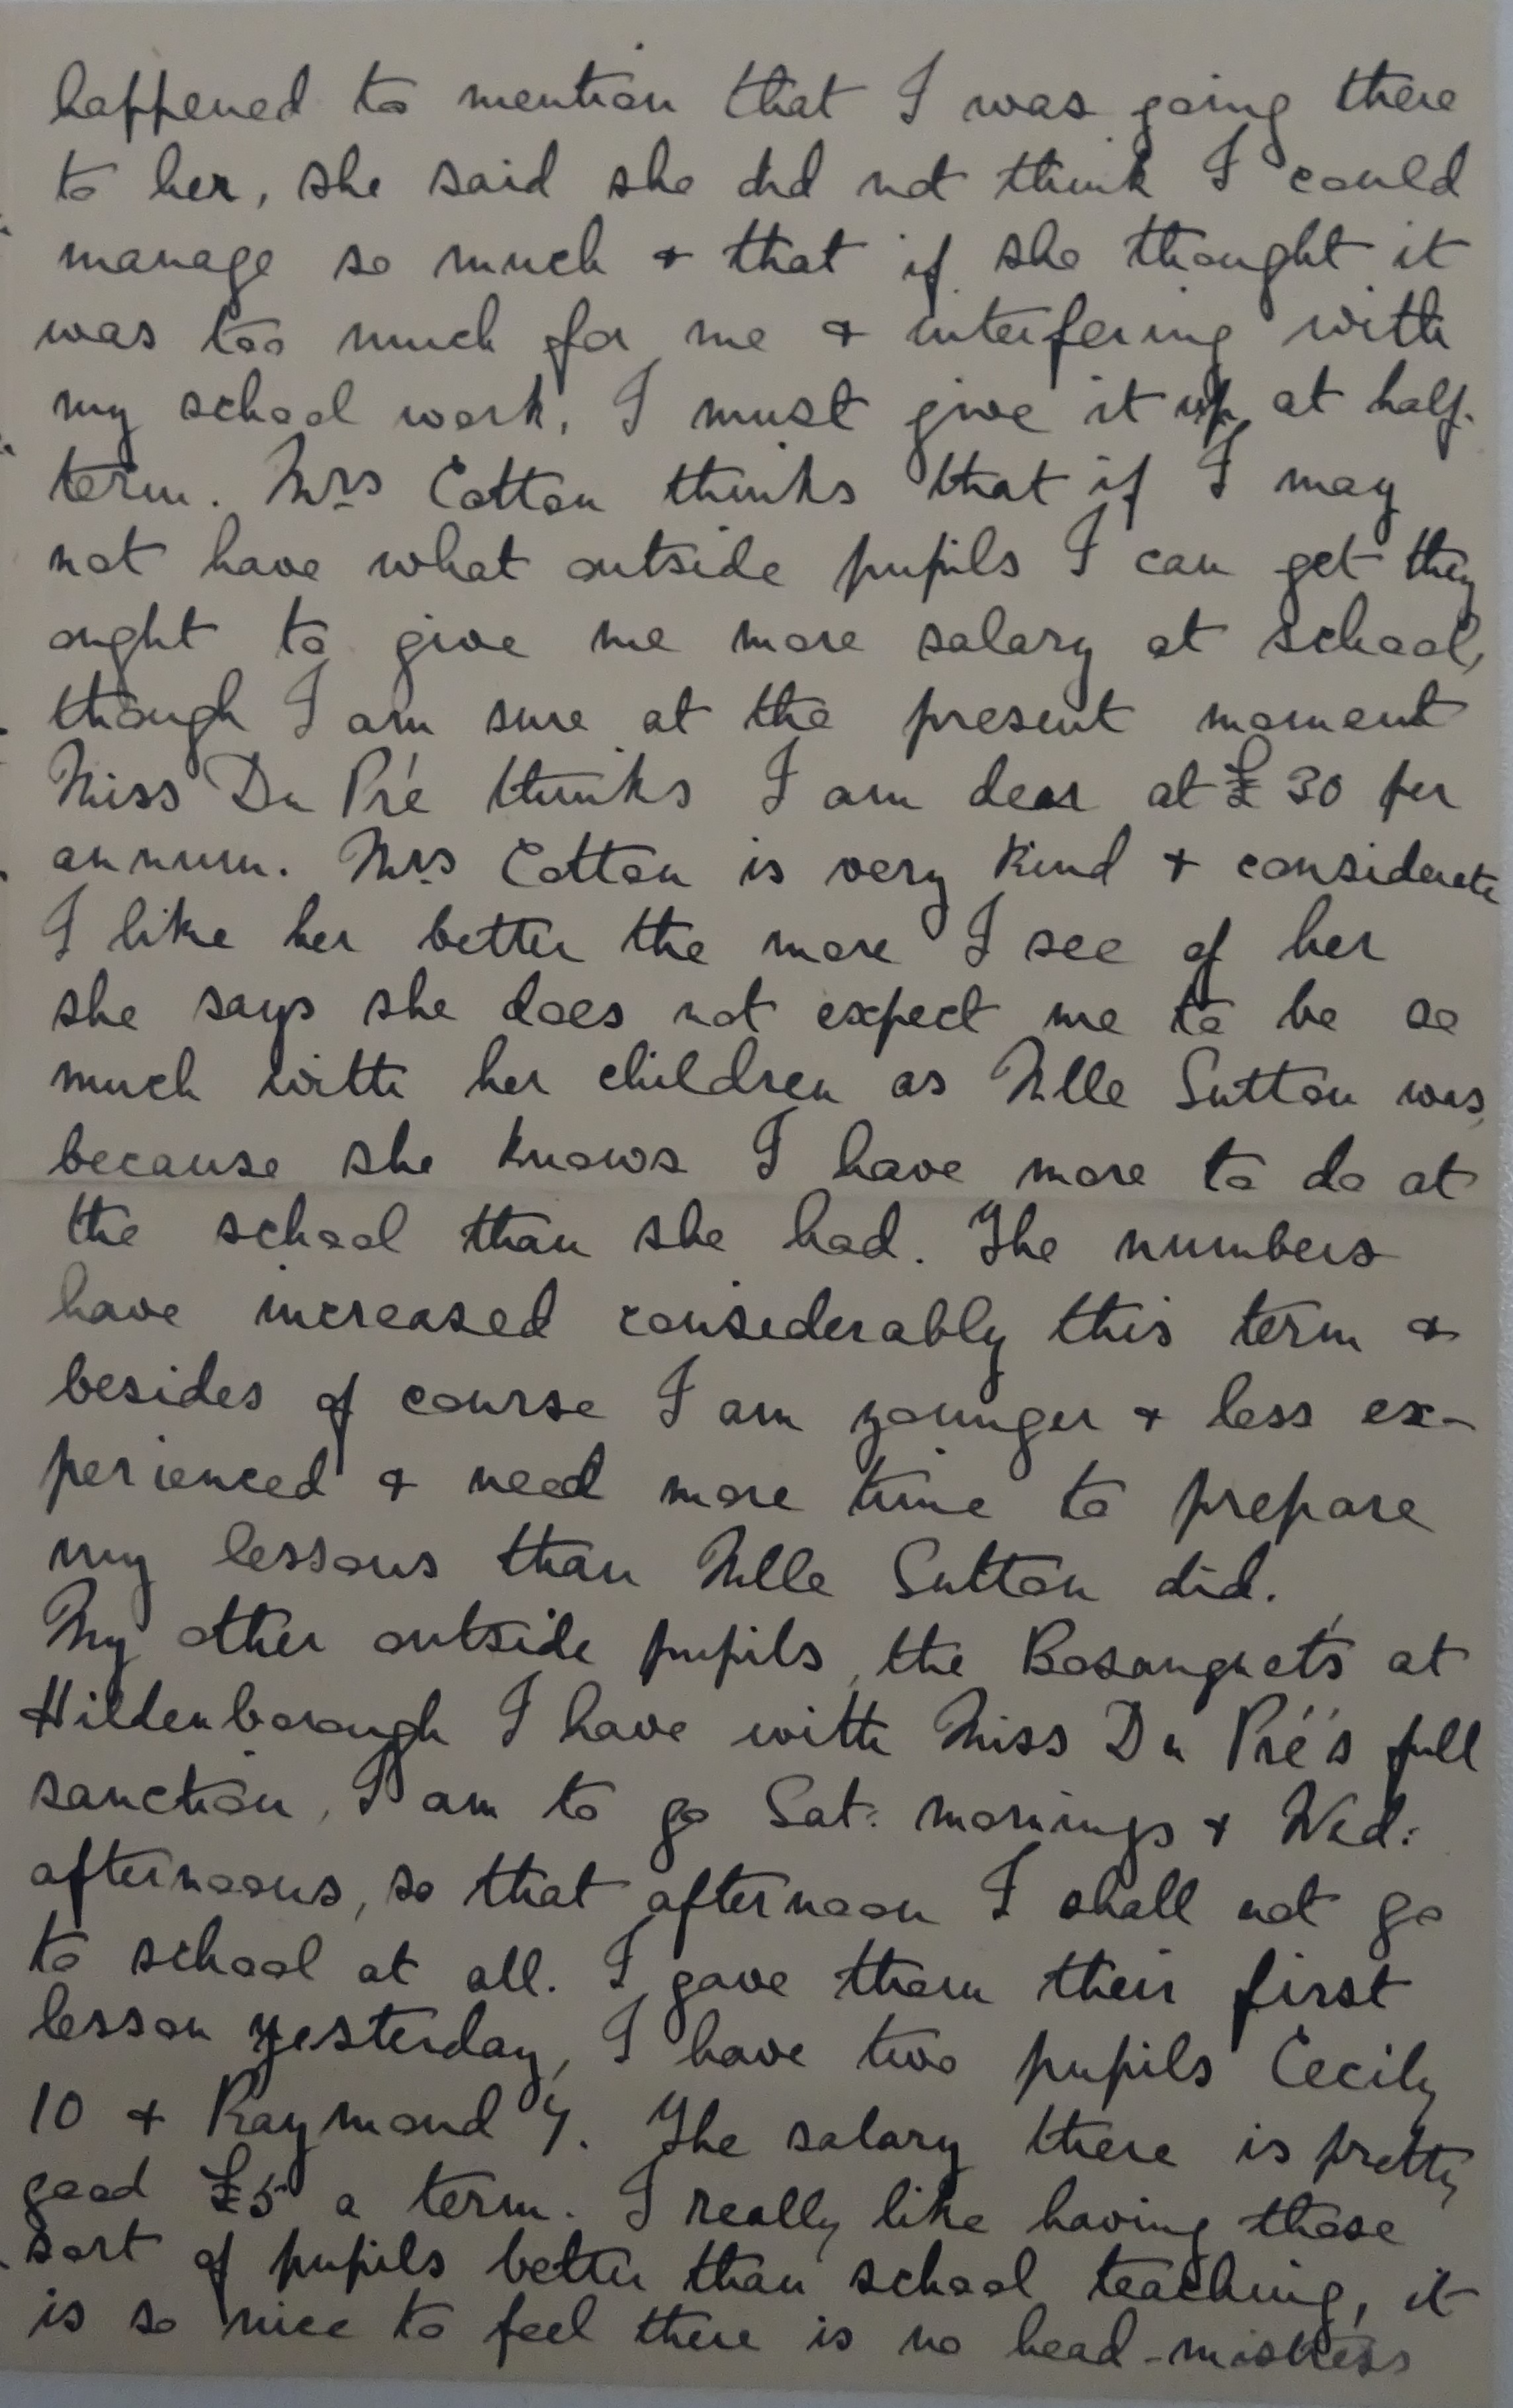 happened to mention that I was going there
to her, she said she did not think I could
manage so much & that if she thought it
was too much for me & interfering with
my school work, I must give it up at half-
term. Mrs Cotton thinks that if I may
not have what outside pupils I can get they
ought to give me more salary at school,
though I am sure at the present moment
Miss Du Pré thinks I am dear at £30 per
annum. Mrs Cotton is very kind & considerate
I like her better the more I see of her
she says she does not expect me to be so
much with her children as Mlle Sutton was,
because she knows I have more to do at
the school than she had. The numbers
have increased considerably this term &
besides of course I am younger & less ex-
perienced & need more time to prepare
my lessons than Mlle Sutton did.
My other outside pupils, the Bosanquet's at
Hildenborough I have with Miss Du Pré's full
sanction, I am to go Sat: mornings & Wed:
afternoons, so that afternoon I shall not go
to school at all. I gave them their first
lesson yesterday, I have two pupils Cecily
10 & Raymond 7. The salary there is pretty
good £5 a term. I really like having those
sort of pupils better than school teaching, it
is so nice to feel there is no head-mistress